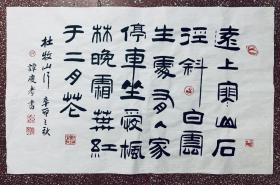 遠上寒山石
徑斜白雲
生處有人家
停車坐愛楓
林晚霜葉紅
于二月花
杜牧山行 辛卯之秋
譚慶孝書